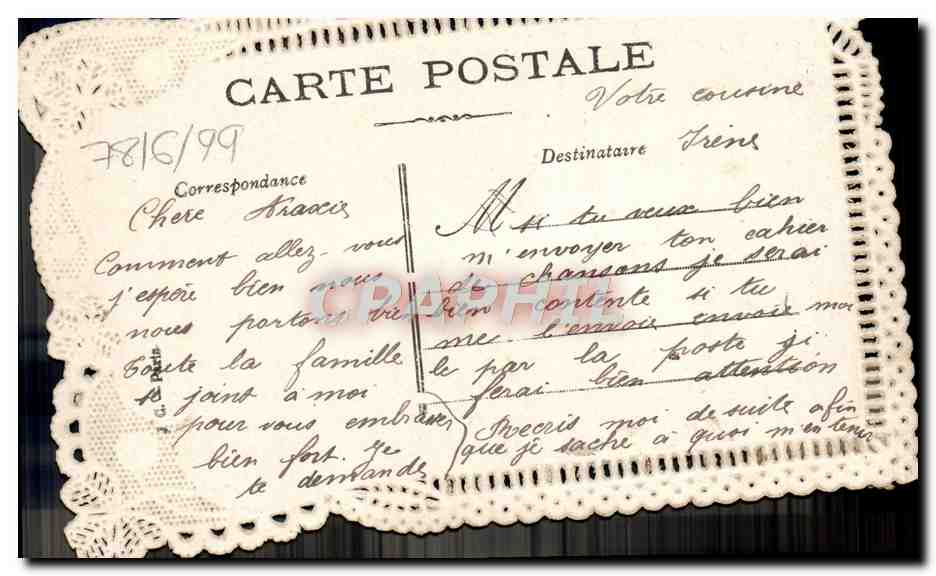 CARTE POSTALE
Correspondance
Chere Araxie
Comment allez-vous
j'espère bien nous
nous portons bien
toute la famille
se joint à moi
pour vous embrasser
bien fort. Je
te demande
Destinataire
M
si tu veux bien
m'envoyer ton cahier
de chansons je serai
bien contente si tu
me l'envoie envoie moi
le par la poste j'i
ferai bien attention
Recris moi de suite afin
que je sache à quoi m'en tenir
Votre cousine
Irène
Paris
CPAPHIL